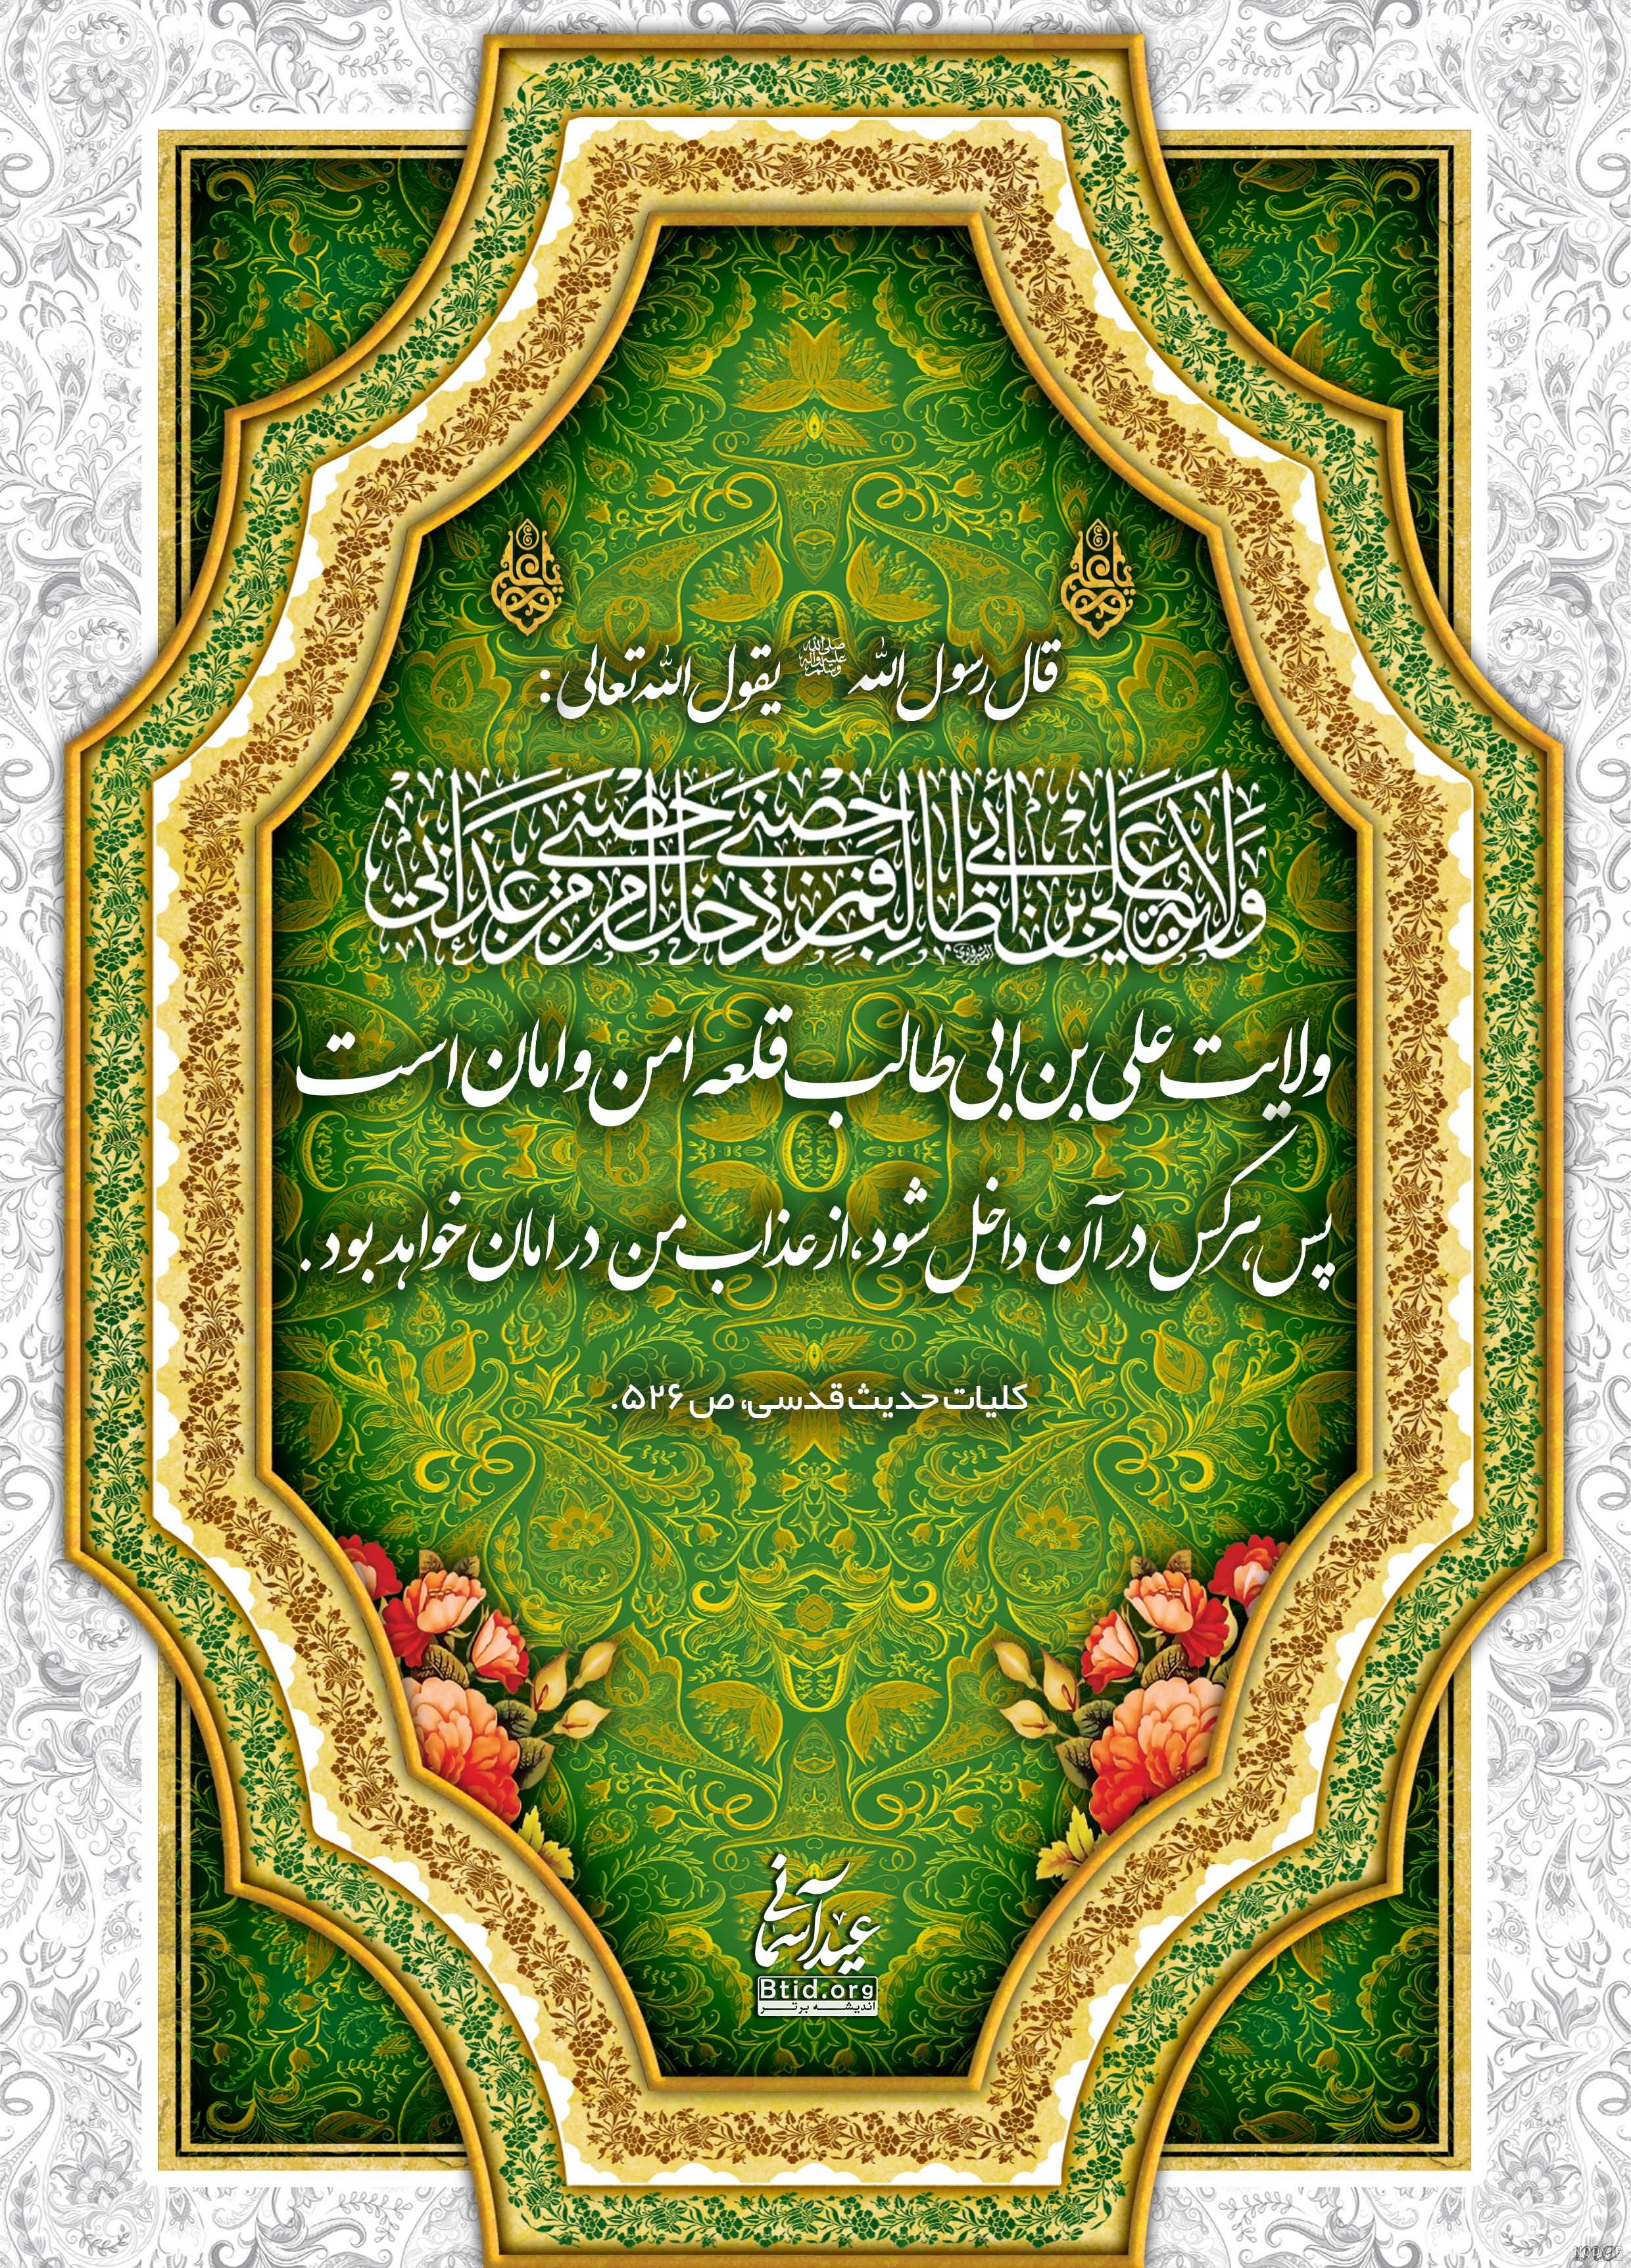 یا علی
یا علی
قال رسول الله صلی الله علیه وآله وسلم یقول الله تعالی :
وَلَایَةُ عَلِيِّ بْنِ أَبِي طَالِبٍ حِصْنِي فَمَنْ دَخَلَ حِصْنِي أَمِنَ مِنْ عَذَابِي
ولایت علی بن ابی طالب قلعه امن و امان است
پس هرکس در آن داخل شود، از عذاب من در امان خواهد بود.
کلیات حدیث قدسی، ص ۵۲۶.
عید آسمانی
Btid.org
اندیشه برتر